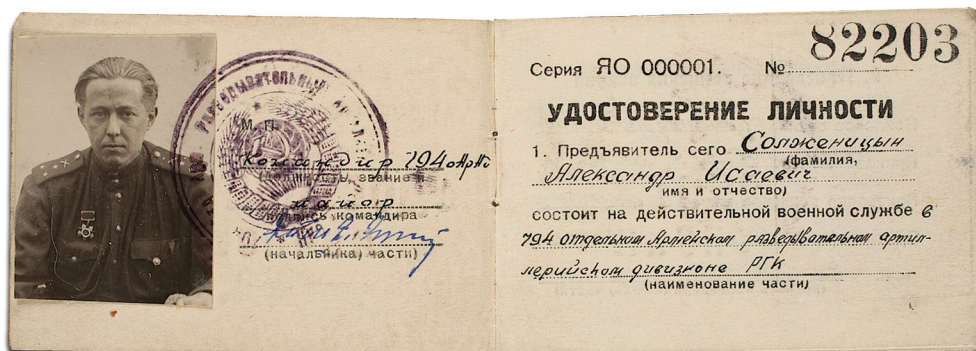 М. П.
Командир 794 оАрАд
(должность, звание и
майор
подпись командира
(начальника) части)
82203
Серия ЯО 000001. №
УДОСТОВЕРЕНИЕ ЛИЧНОСТИ
1. Предъявитель сего Солженицын
(фамилия,
Александр Исаевич
имя и отчество)
состоит на действительной военной службе в
794 отдельном Армейском разведывательном артил-
лерийском дивизионе РГК
(наименование части)